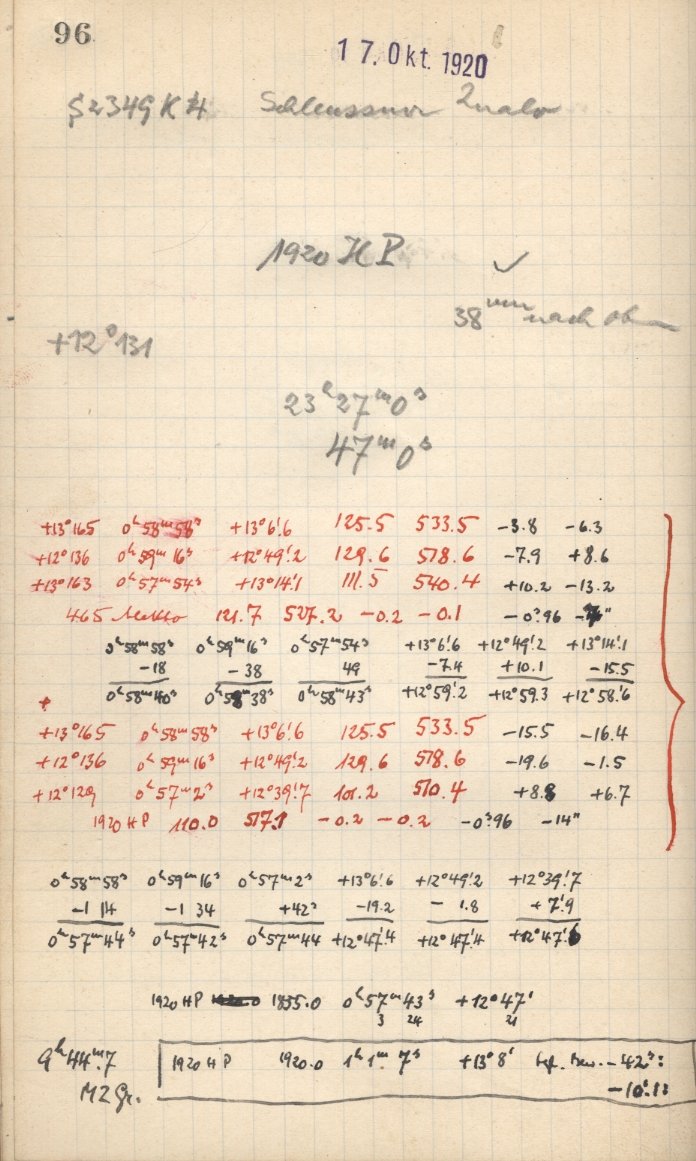 96
17. Okt. 1920
1920 HP
✓
38 mm nach oben
+12°131
23h 27m 0s
47m 0s
+13°165 0h58m58s +13°6!6 125.5 533.5 -3.8 -6.3
+12°136 0h59m16s +12°49!2 129.6 518.6 -7.9 +8.6
+13°163 0h57m54s +13°14!1 111.5 540.4 +10.2 -13.2
465 Alekto 121.7 527.2 -0.2 -0.1 -0s.96
0h58m58s 0h59m16s 0h57m54s +13°6!6 +12°49!2 +13°14!1
-18 -38 49 -7.4 +10.1 -15.5
0h58m40s 0h58m38s 0h58m43s +12°59!2 +12°59.3 +12°58!6
+13°165 0h58m58s +13°6!6 125.5 533.5 -15.5 -16.4
+12°136 0h59m16s +12°49!2 129.6 518.6 -19.6 -1.5
+12°129 0h57m2s +12°39!7 101.2 510.4 +8.8 +6.7
1920 HP 110.0 517.1 -0.2 -0.2 -0s.96 -14"
0h58m58s 0h59m16s 0h57m2s +13°6!6 +12°49!2 +12°39!7
-1 14 -1 34 +42s -19.2 - 1.8 + 7!9
0h57m44s 0h57m42s 0h57m44 +12°47!4 +12°47!4 +12°47!6
1920 HP 1855.0 0h57m43s +12°47'
3 24 21
9h44m.7 1920 HP 1920.0 1h1m 7s +13°8' tgl. Bew. -42s:
MZGr. -10!1: